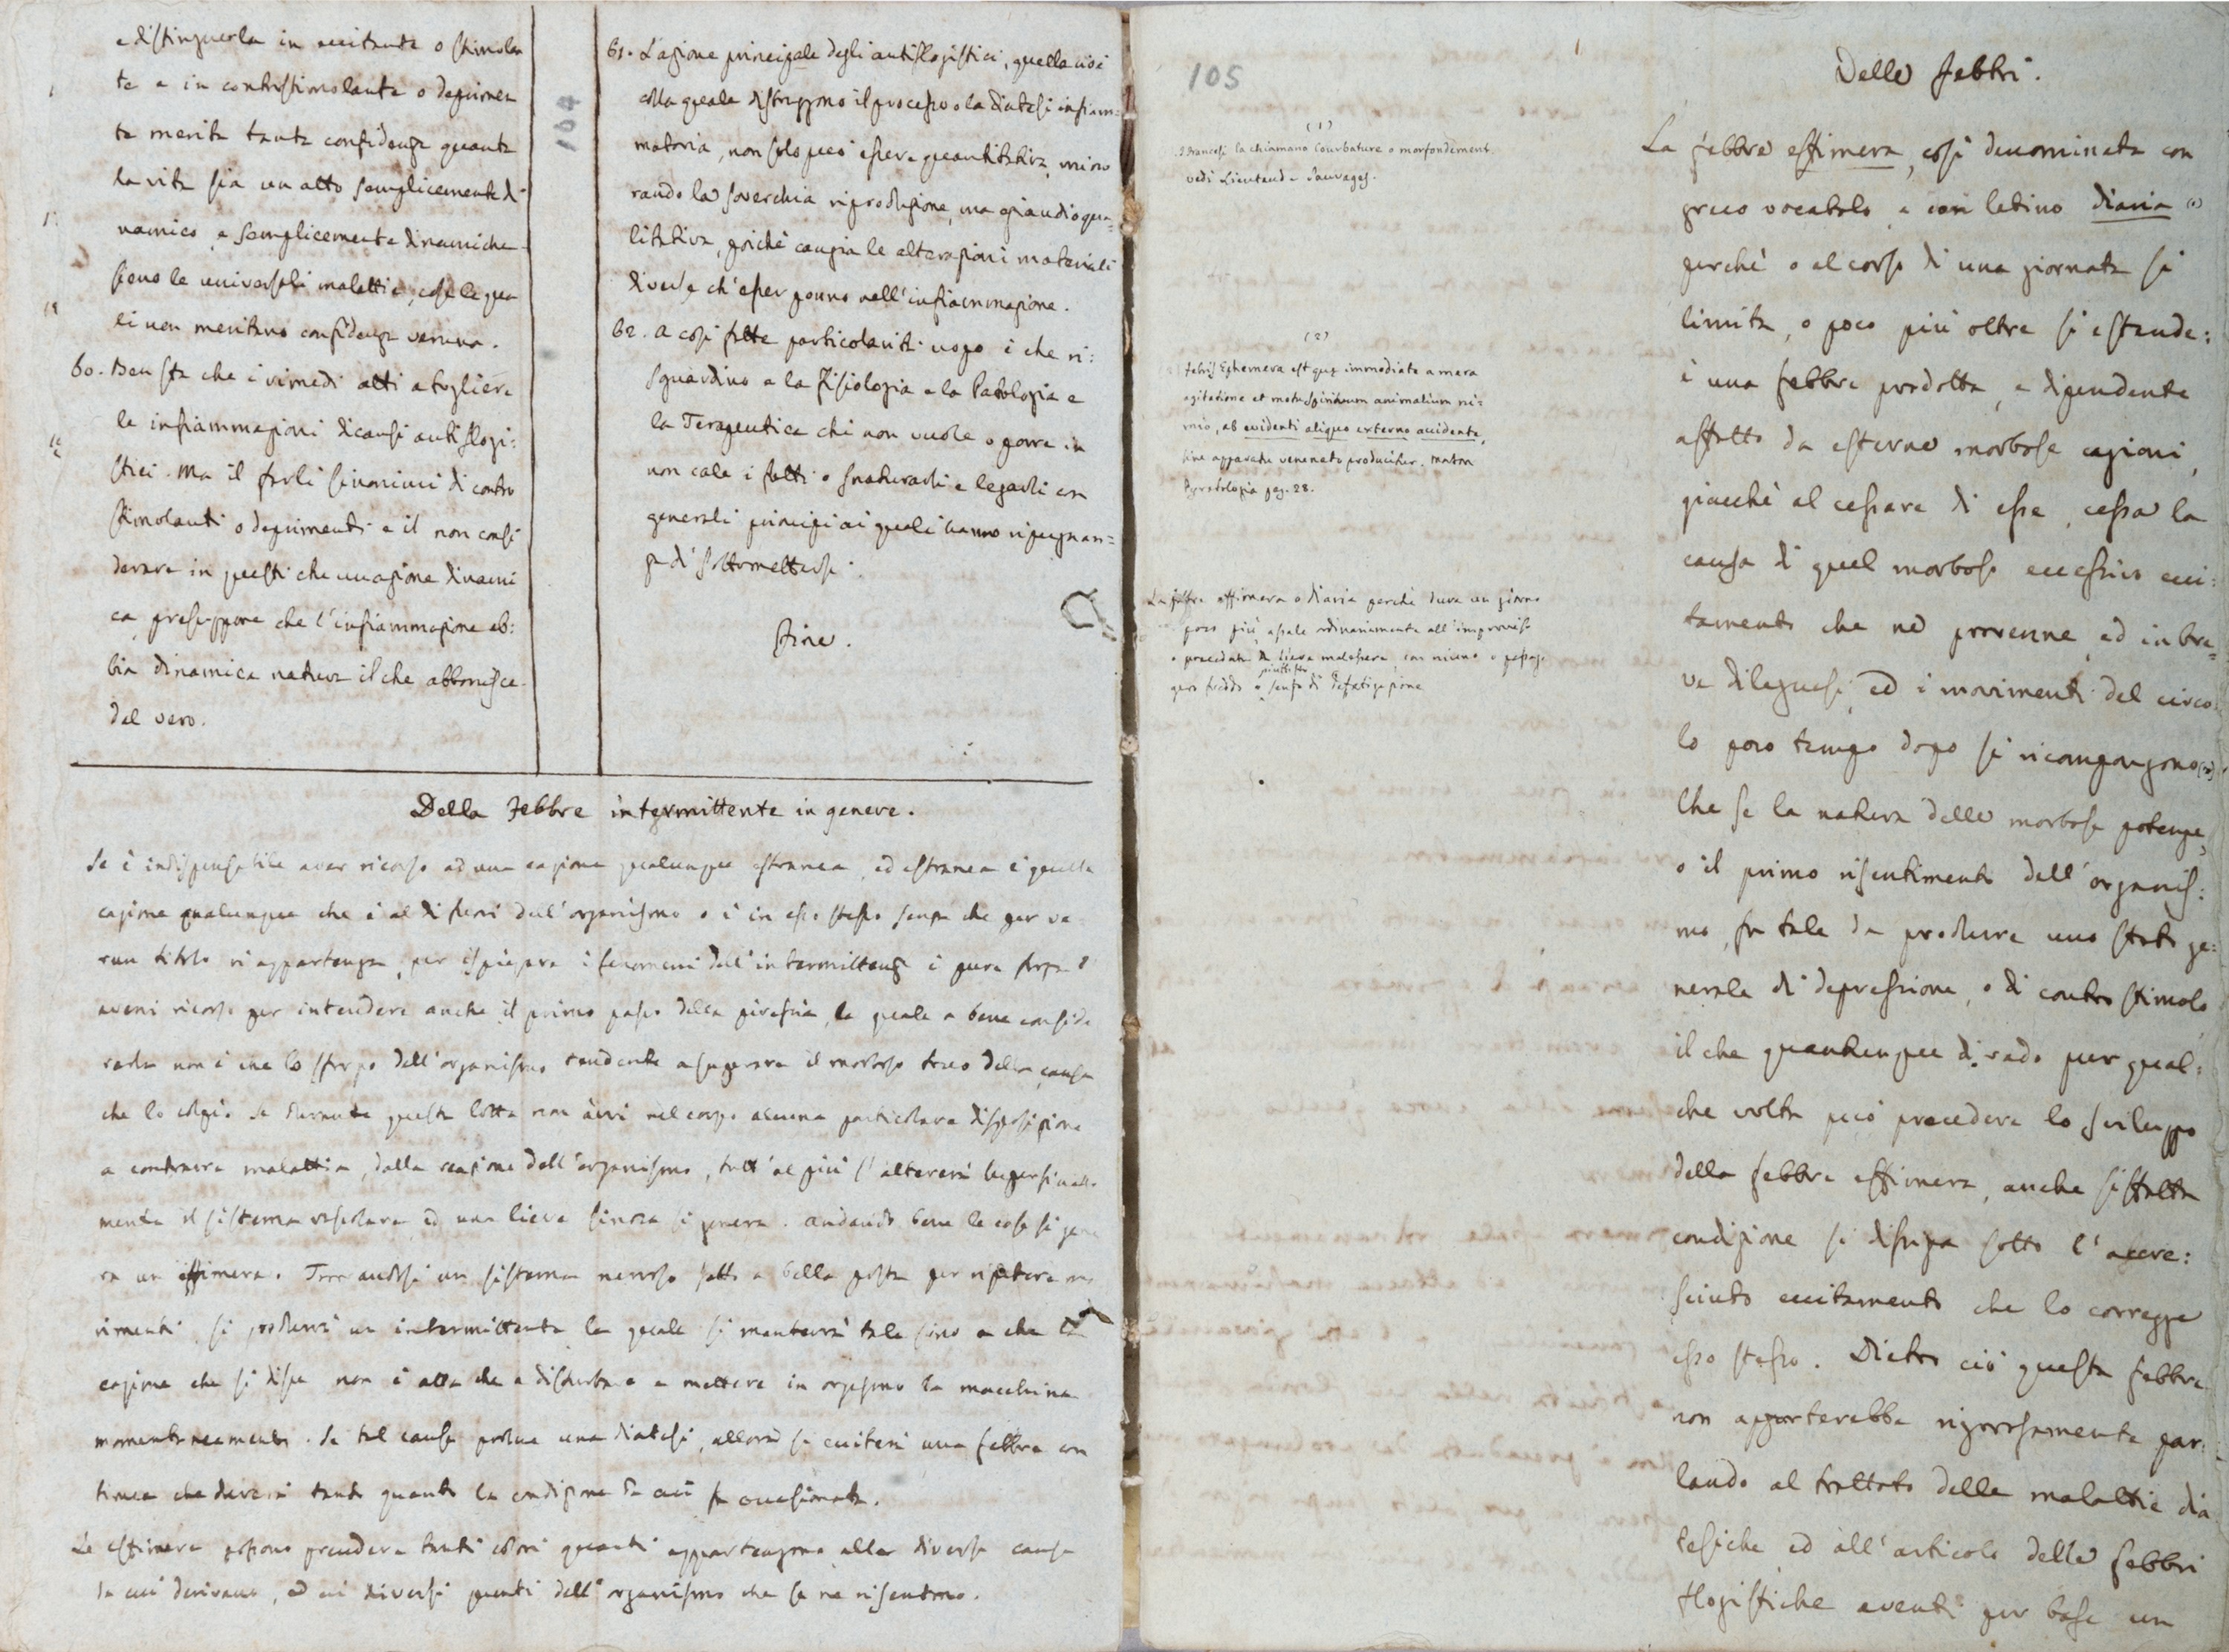 e distinguerla in eccitante o stimolan
te e in controstimolante o deprimen
te merita tanta confidenza quanta
la vita sia un atto semplicemente di
namico, e semplicemente dinamiche
sieno le universali malattie, cose le qua
li non meritano confidenza veruna.
60. Ben sta che i rimedi atti a togliere
le infiammazioni dicansi antiflogi:
stici. Ma il farli sinonimi di contro
stimolanti o deprimenti e il non consi
derare in questi che un'azione dinami
ca, presuppone che l'infiammazione ab:
bia dinamica natura il che abborrisce
dal vero.
104
61. L'azione principale degli antiflogistici, quella cioè
colla quale distruggono il processo o la diatesi infiam=
matoria, non solo può essere quantitativa, mino
rando la soverchia riproduzione, ma eziandio qua=
litativa, poichè cangia le alterazioni materiali
diverse ch'esser ponno nell'infiammazione.
62. A così fatte particolarità uopo è che ri:
sguardino e la Fisiologia e la Patologia e
la Terapeutica chi non vuole o porre in
non cale i fatti o snaturarli e legarli con
generali principi ai quali hanno ripugnan=
za di sottomettersi.
Fine.
Della Febbre intermittente in genere.
Se è indispensabile aver ricorso ad una cagione qualunque estranea, ed estranea è quella
cagione qualunque che è al di fuori dell'organismo o è in esso stesso senza che per ve
run titolo vi appartenga, per ispiegare i fenomeni dell'intermittenza è pura forza l'
avervi ricorso per intendere anche il primo passo della piressia, la quale a bene conside
rarla non è che lo sforzo dell'organismo tendente a superare il morboso della causa
che lo colpì. Se durante questa lotta non àvvi nel corpo alcuna particolare disposizione
a contrarre malattia, dalla reazione dell'organismo, tutt'al più s'altererà
mente il sistema vascolare ed una lieve sinoca si genera. Andando bene le cose si gene
ra un effimera. Trovandosi un sistema nervoso fatto a bella posta per ripetere mo
vimenti, si produrrà un intermittente la quale si manterrà tale sino a che la
cagione che si disse non è atta che a disturbare e mettere in orgasmo la macchina
momentaneamente. Se tal causa produce una diatesi, allora si ecciterà una febbre con
tinua che durerà tanto quanto la condizione da cui fu occasionata.
Le effimere possono prendere tanti colori quanti appartengono alle diverse cause
da cui derivano, ed ai diversi punti dell'organismo che se ne risentono.
105
(1)
I Francesi la chiamano Courbature o morfondement.
vedi Lieutaud e Sauvages.
(2)
Febris Ephemera est quæ immediate a mera
agitatione et motu spirituum animalium ni=
mio, ab evidenti aliquo externo accidente,
sine apparatu venenato producitur. Morton
Pyretologia pag. 28.
La febbre effimera o diaria perchè dura un giorno
o poco più, assale ordinariamente all'improvviso
o preceduta da lieve malessere, con niuno o passag.
gero freddo o piuttosto senso di defatigazione
Delle Febbri.
La febbre effimera, così denominata con
greco vocabolo, e con latino diaria (1)
perchè o al corso di una giornata si
limita, o poco più oltre si estende:
è una febbre prodotta, e dipendente
affatto da esterne morbose cagioni,
giacchè al cessare di esse, cessa la
causa di quel morboso eccessivo ecci:
tamento che ne provenne, ed in bre=
ve dileguasi, ed i movimenti del circo:
lo poco tempo dopo si ricompongono (2)
Che se la natura delle morbose potenze,
o il primo risentimento dell'organis:
mo, fu tale da produrre uno stato ge:
nerale di depressione, o di contro stimolo
il che quantunque di rado pur qual:
che volta può precedere lo sviluppo
della febbre effimera, anche siffatta
condizione si dissipa sotto l'accre:
sciuto eccitamento che lo corregge
esso stesso. Dietro ciò questa febbre
non apparterebbe rigorosamente par:
lando al trattato delle malattie dia
tesiche ed all'articolo delle febbri
flogistiche aventi per base un